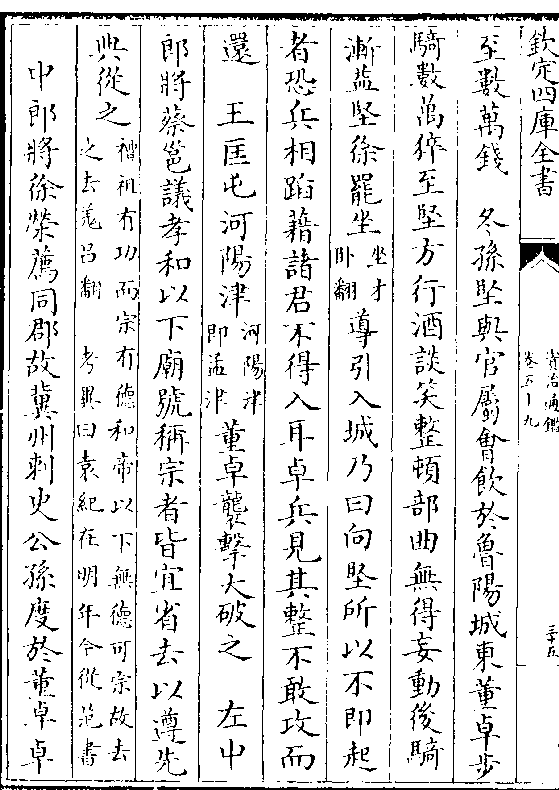 欽定四庫全書
資治通鑑
卷五十九
三十五
至數萬錢　冬孫堅與官屬會飲於魯陽城東董卓步
騎數萬猝至堅方行酒談笑整頓部曲無得妄動後騎
漸益堅徐罷坐
坐才
卧翻
導引入城乃曰向堅所以不即起
者恐兵相蹈藉諸君不得入耳卓兵見其整不敢攻而
還　王匡屯河陽津
河陽津
即孟津
董卓襲擊大破之　左中
郎將蔡邕議孝和以下廟號稱宗者皆宜省去以遵先
典從之
禮祖有功而宗有德和帝以下無德可宗故去
之去羌呂翻　考異曰袁紀在明年今從范書
中郎將徐榮薦同郡故冀州刺史公孫度於董卓卓